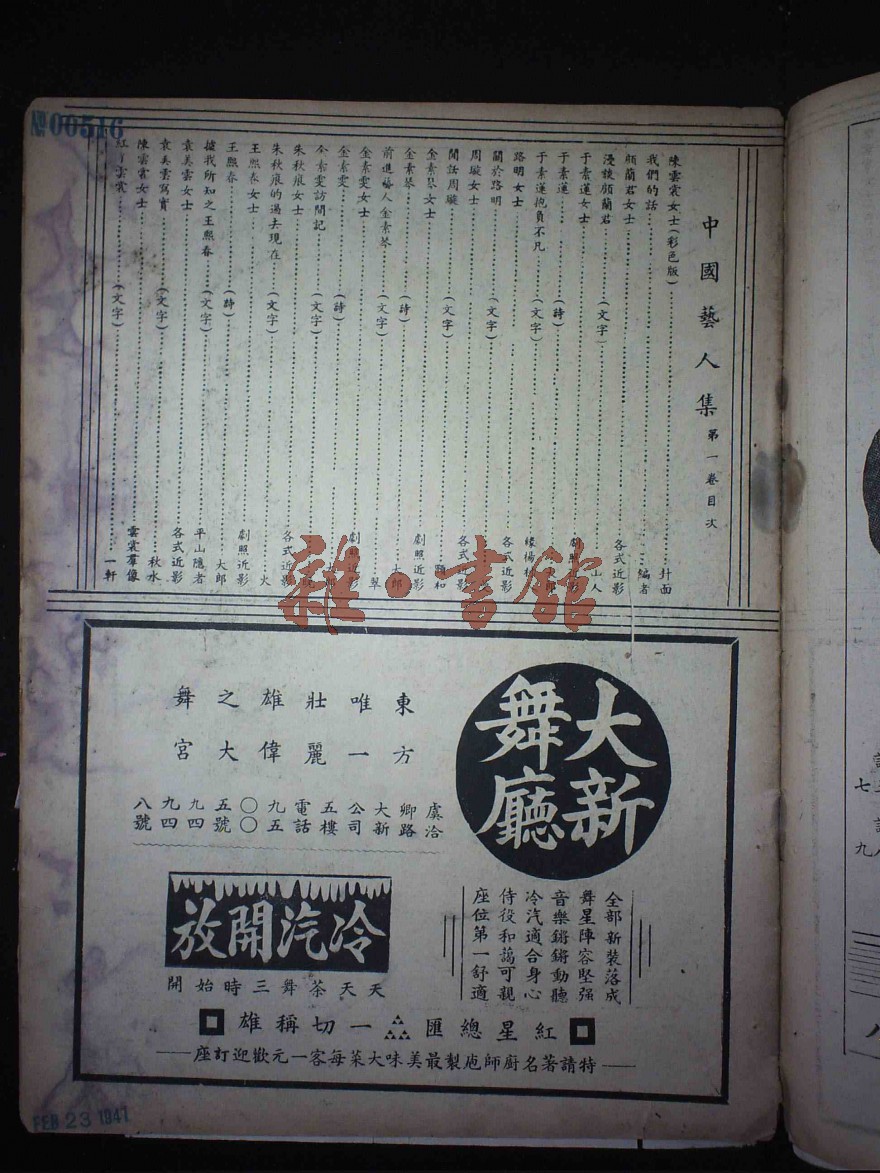 № 00516
中國藝人集 第一卷目次
陳雲裳女士(彩色版) 封面
我們的話 編者
顧蘭君女士 各式近影
漫談顧蘭君 (文字) 山人
于素蓮女士 劇照近影
于素蓮 (詩) 大郎
于素蓮抱負不凡 (文字)
路明女士 各式近影
關於路明 (文字)
周璇女士 各式近影
閒話周璇 (文字)
金素琴女士 劇照近影
金素琴 (詩) 大郎
前進藝人金素琴 (文字) 翠
金素雯女士 劇照近影
金素雯 (詩) 大郎
金素雯訪問記 (文字)
朱秋痕女士 各式近影
朱秋痕的過去現在 (文字) 火
王熙春女士 劇照近影
王熙春 (詩) 大郎
據我所知之王熙春 (文字) 平山隱者
袁美雲女士 各式近影
袁美雲寫實 (文字) 秋水
陳雲裳女士 雲裳羣像
紅了雲裳 (文字) 一軒
雜·書館
大新
舞廳
東方
唯一
壯麗
雄偉
之大
舞宮
虞洽
卿路
大新
公司
五樓
電話
九五
〇〇
五號
九四
九四
八號
全部新裝落成
舞星陣容堅强
音樂鏘鏘動聽
冷汽適合身心
侍役和藹可親
座位第一舒適
冷汽開放
天天茶舞三時始開
紅星總匯 一切稱雄
特請著名廚師庖製最美味大菜每客一元歡迎訂座
FEB 23 1941